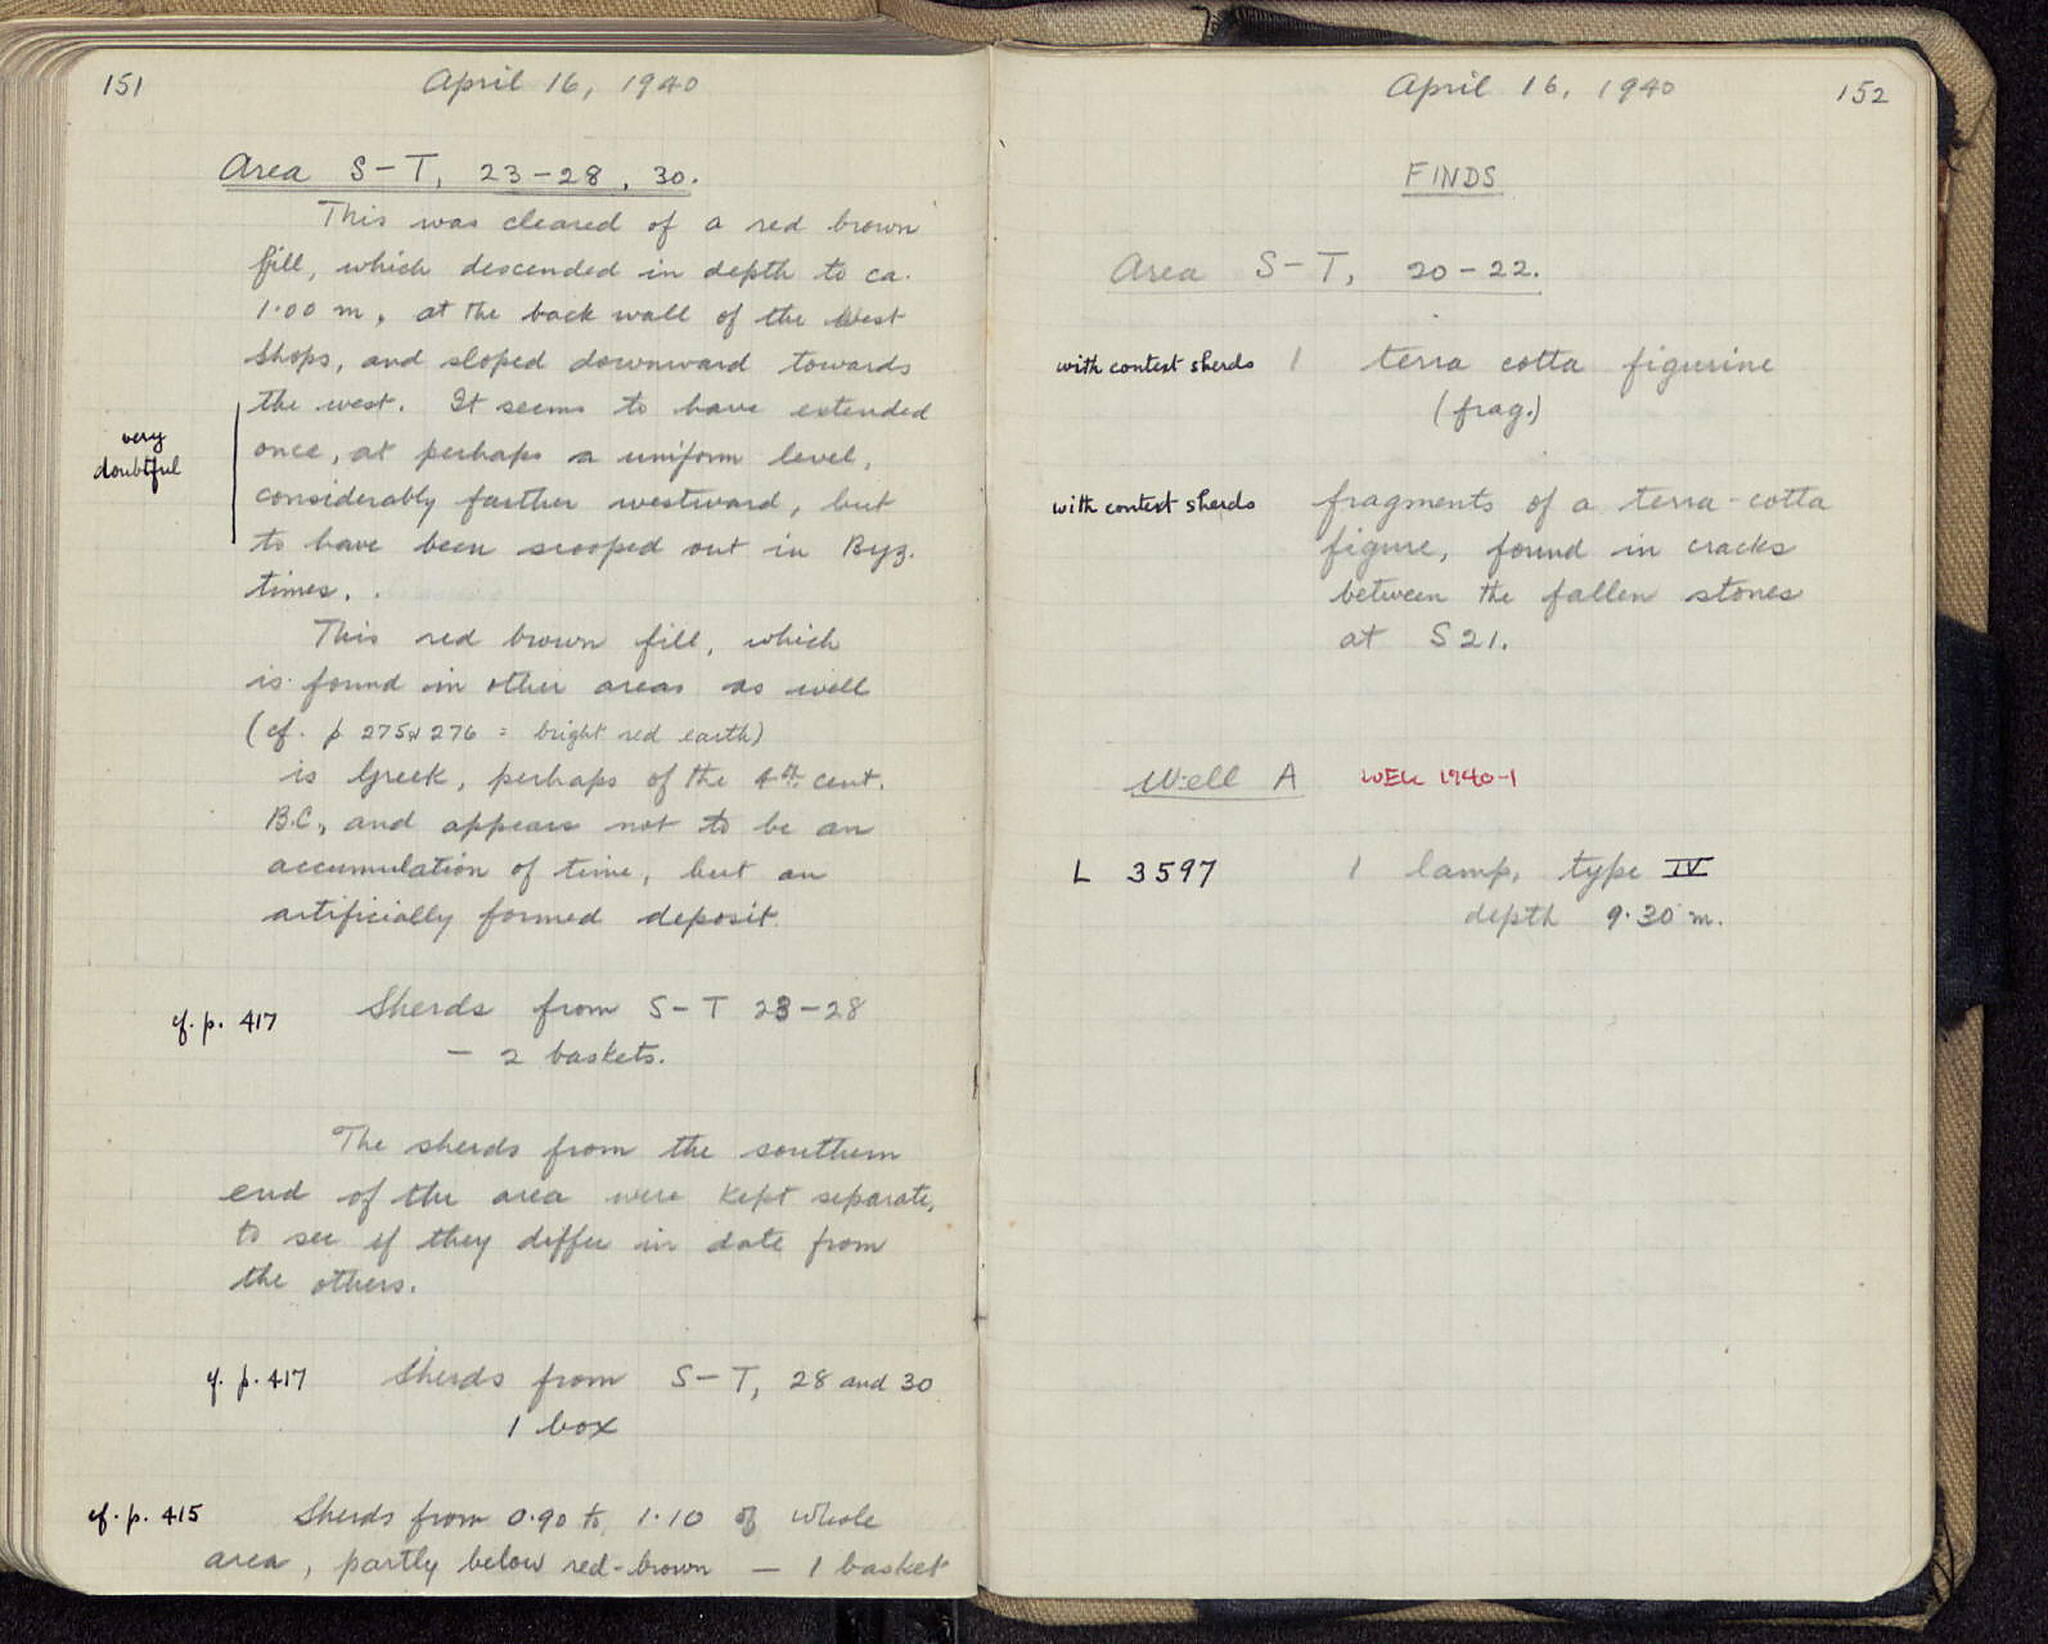 151
April 16, 1940
Area S-T, 23-28, 30.
This was cleared of a red brown
fill, which descended in depth to ca.
1.00 m, at the back wall of the West
Shops, and sloped downward towards
the west. It seems to have extended
once, at perhaps a uniform level,
very
doubtful
considerably farther westward, but
to have been scooped out in Byz.
times.
This red brown fill, which
is found in other areas as well
(cf. p 275 & 276 = bright red earth)
is Greek, perhaps of the 4th cent.
B.C., and appears not to be an
accumulation of time, but an
artificially formed deposit.
cf. p. 417 Sherds from S-T 23-28
- 2 baskets.
The sherds from the southern
end of the area were kept separate,
to see if they differ in date from
the others.
cf. p. 417 Sherds from S-T, 28 and 30
1 box
cf. p. 415 Sherds from 0.90 to 1.10 of whole
area, partly below red-brown - 1 basket
April 16, 1940
152
FINDS
Area S-T, 20-22.
with context sherds 1 terra cotta figurine
(frag.)
with context sherds fragments of a terra-cotta
figure, found in cracks
between the fallen stones
at S21.
Well A WELL 1940-1
L 3597 1 lamp, type IV
depth 9.30 m.